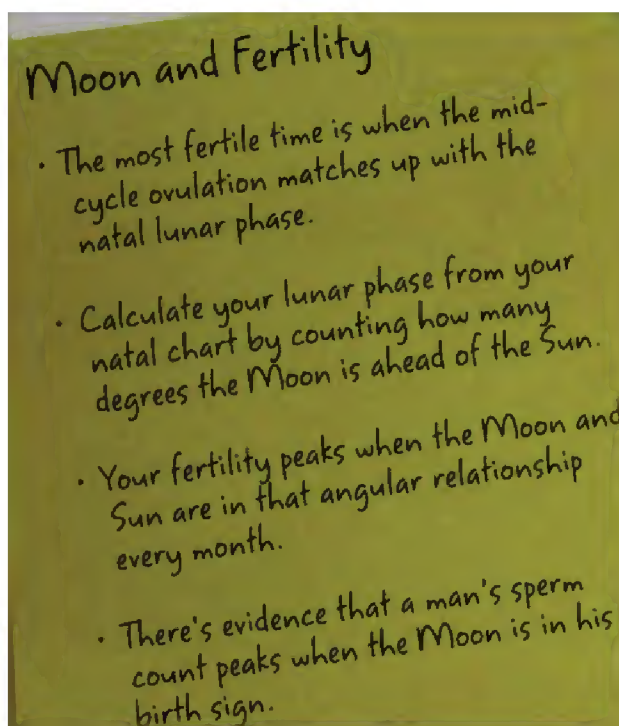 Moon and Fertility
· The most fertile time is when the mid-
cycle ovulation matches up with the
natal lunar phase.
· Calculate your lunar phase from your
natal chart by counting how many
degrees the Moon is ahead of the Sun.
· Your fertility peaks when the Moon and
Sun are in that angular relationship
every month.
· There's evidence that a man's sperm
count peaks when the Moon is in his
birth sign.